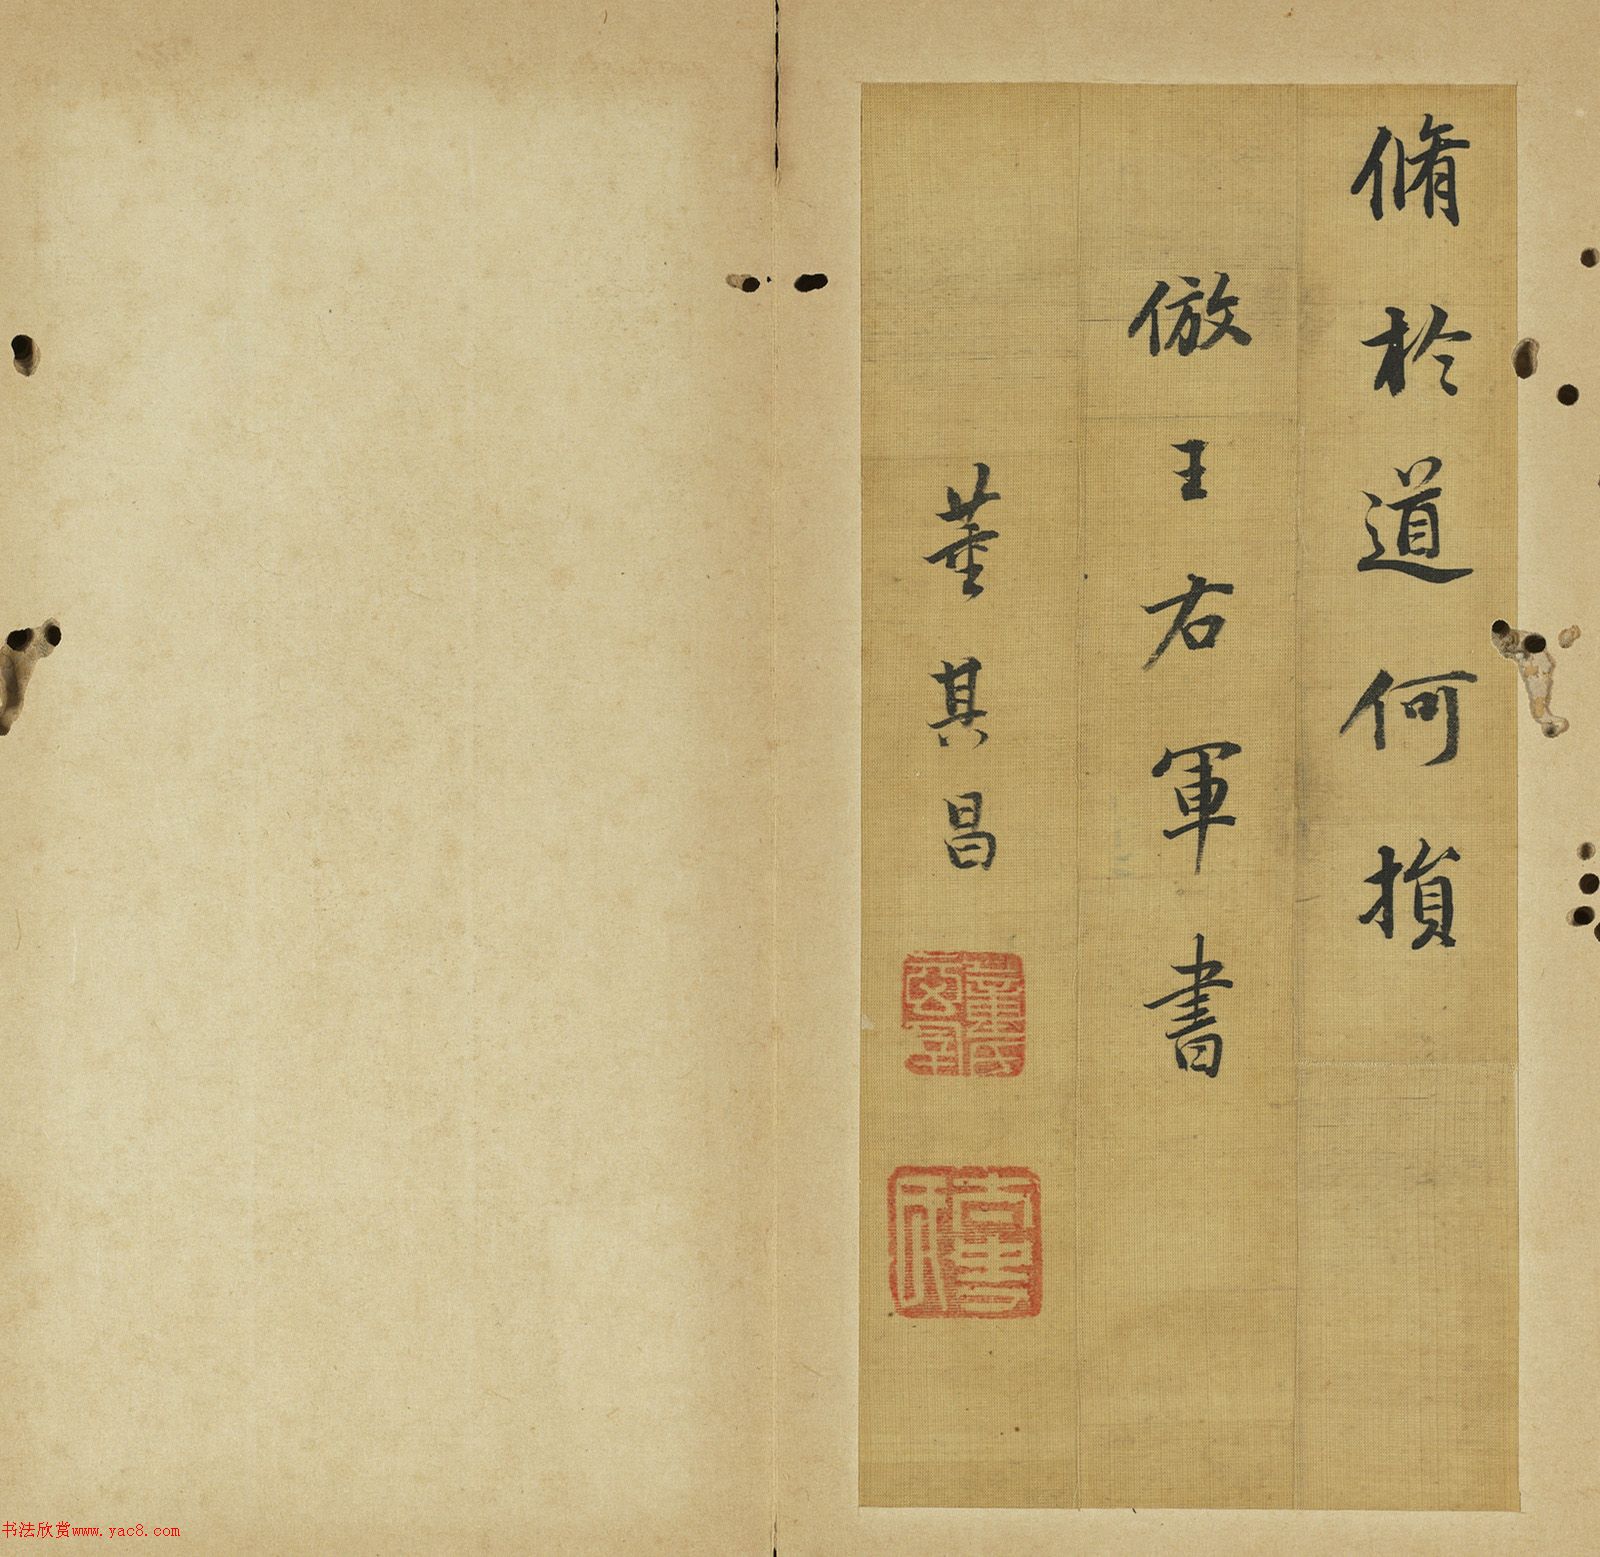 脩於道何損
倣王右軍書
董其昌
書法欣赏www.yac8.com